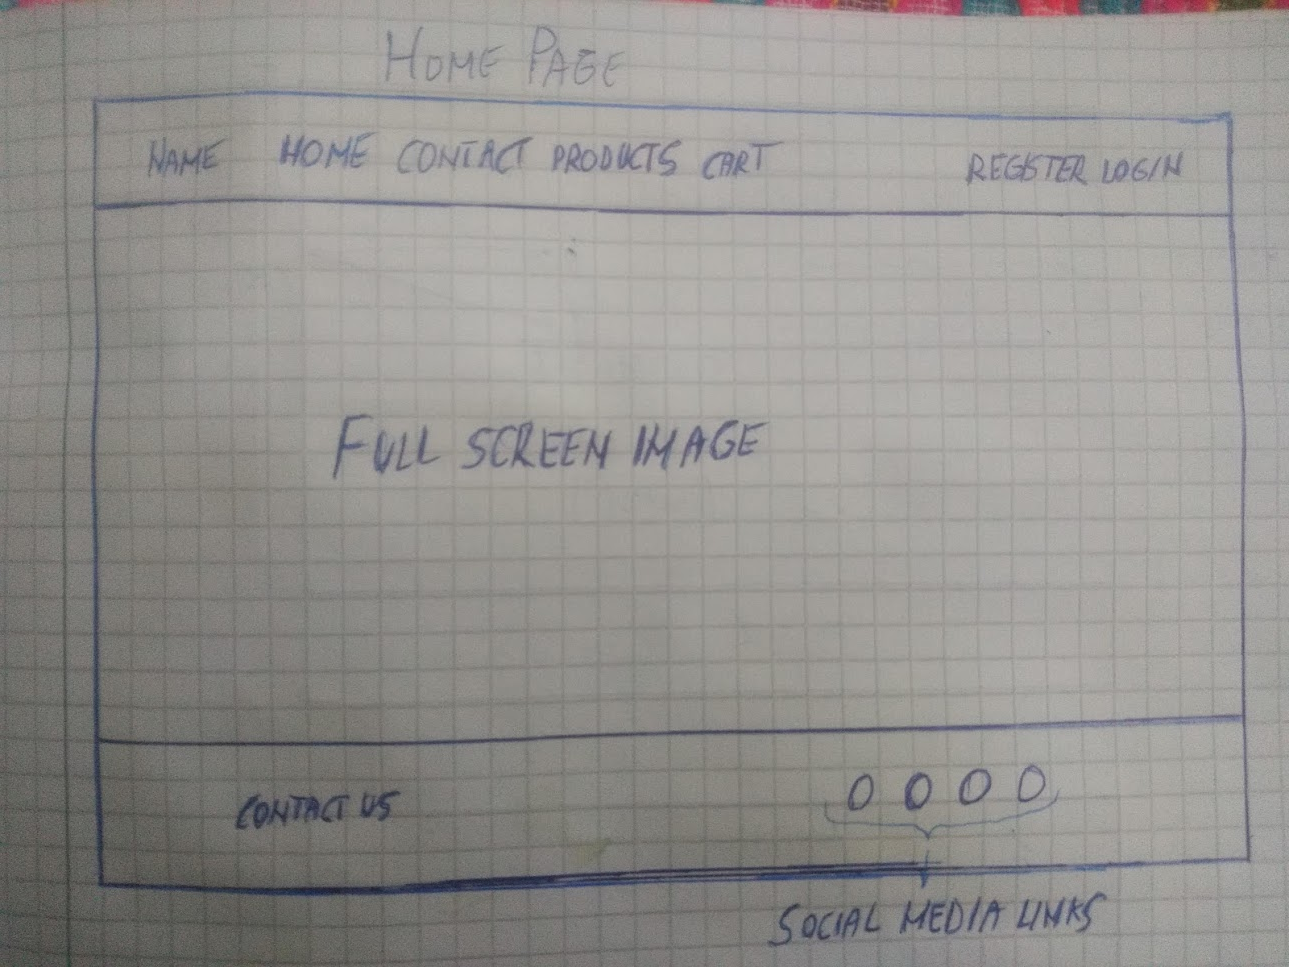 HOME PAGE
NAME HOME CONTACT PRODUCTS CART REGISTER LOGIN
FULL SCREEN IMAGE
CONTACT US
SOCIAL MEDIA LINKS